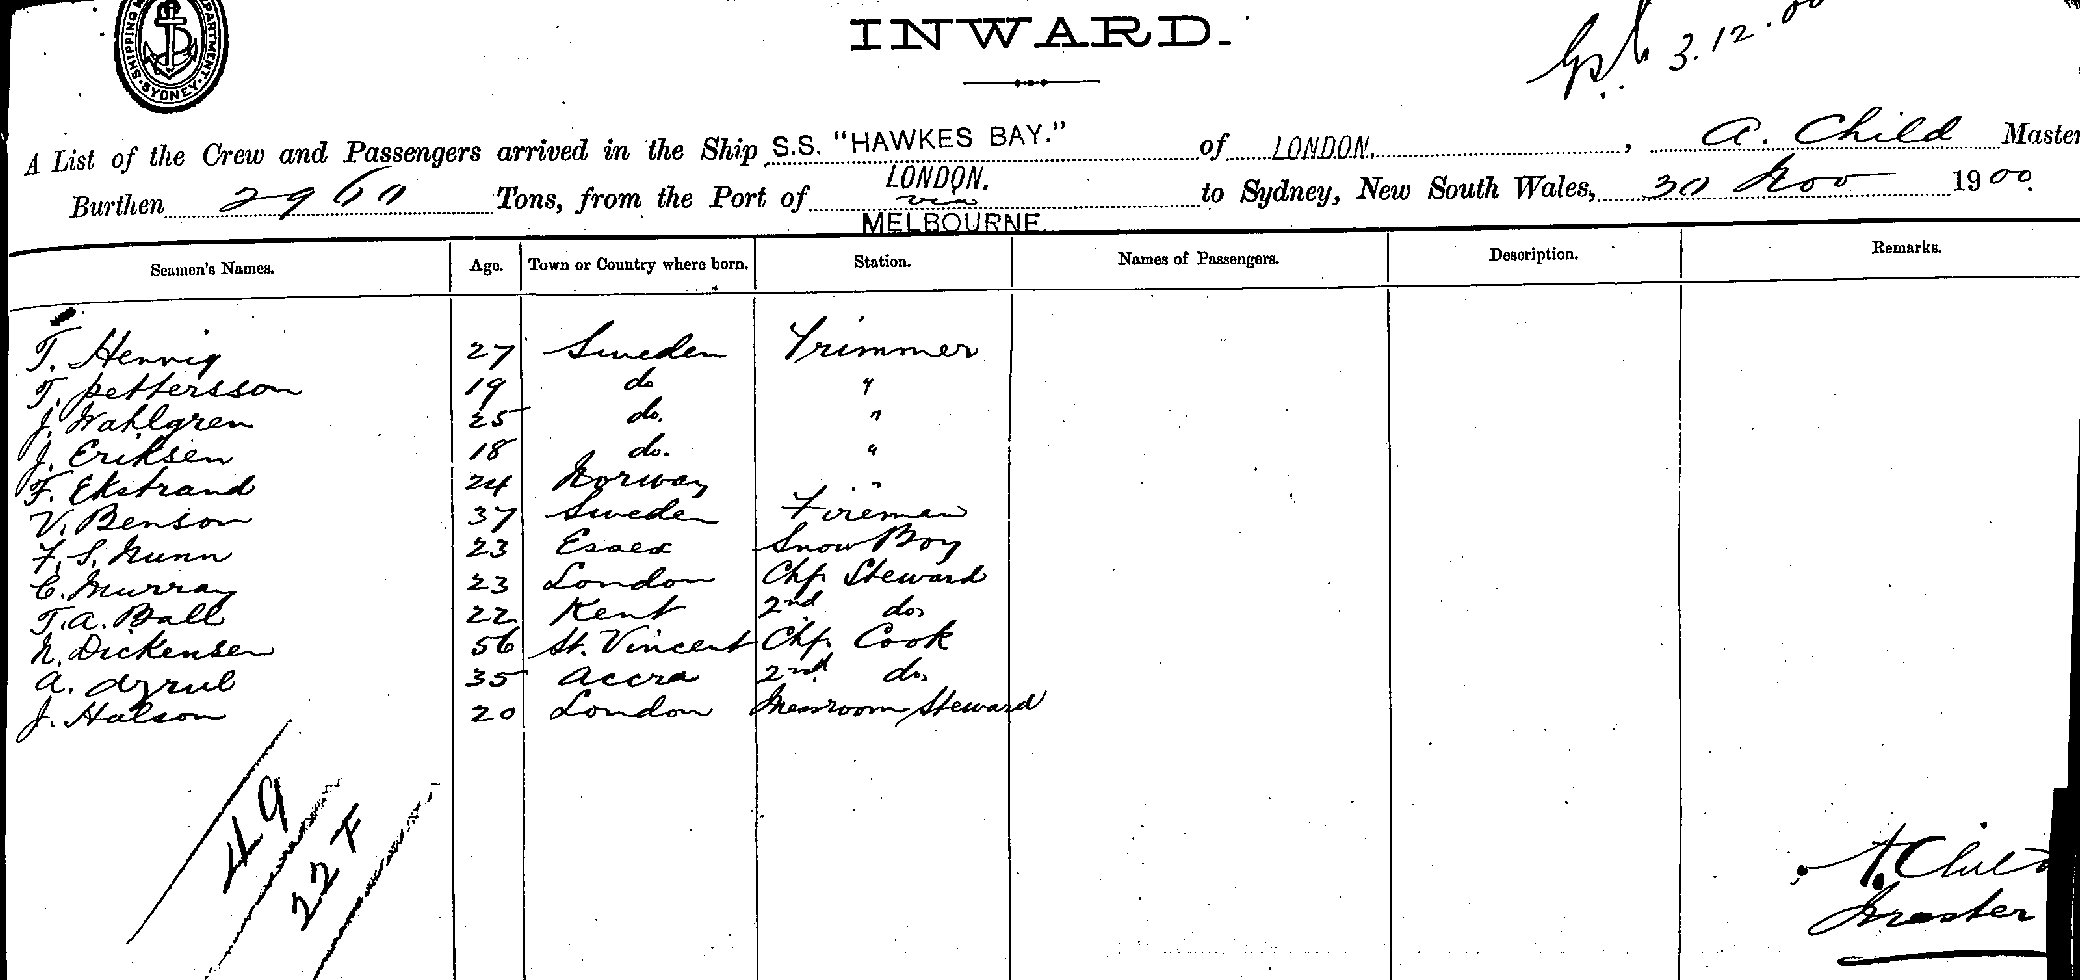 INWARD.
3.12.00
A List of the Crew and Passengers arrived in the Ship S.S. "HAWKES BAY." of LONDON, A. Child Master
Burthen 2960 Tons, from the Port of LONDON. via MELBOURNE. to Sydney, New South Wales, 30 Nov 1900.
Seamen's Names. Age. Town or Country where born. Station. Names of Passengers. Description. Remarks.
T. Hennig 27 Sweden Trimmer
T. Pettersson 19 do "
J. Wahlgren 25 do. "
J. Eriksen 18 do. "
F. Ekstrand 24 Norway "
V. Benson 37 Sweden Fireman
F. S. Nunn 23 Essex Snow Boy
C. Murray 23 London Chf. Steward
T. A. Ball 22 Kent 2nd do.
N. Dickensen 56 St. Vincent Chf. Cook
A. 35 Accra 2nd do.
J. Halson 20 London Messroom Steward
49
22 F
A. Child
Master